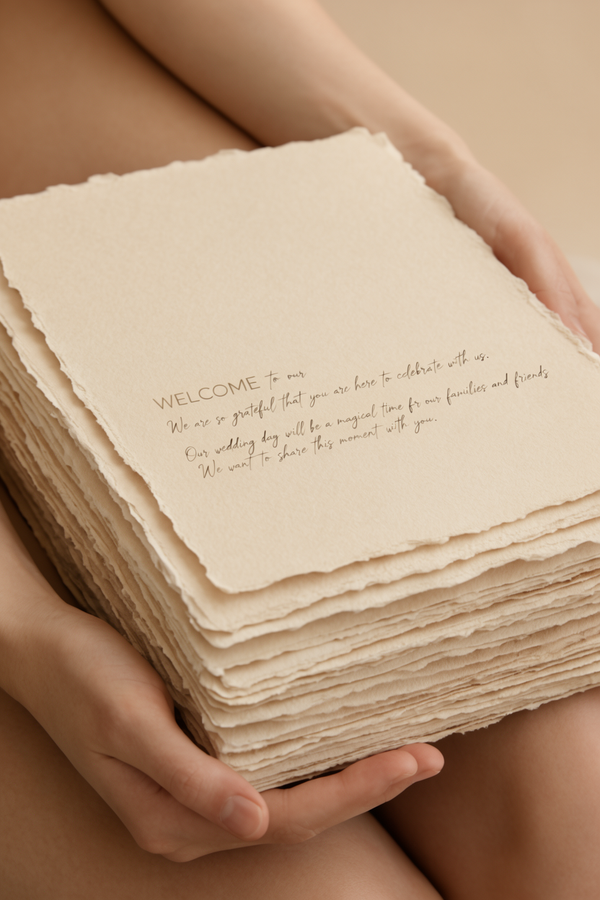 WELCOME to our
We are so grateful that you are here to celebrate with us.
Our wedding day will be a magical time fr our families and friends
We want to share this moment with you.